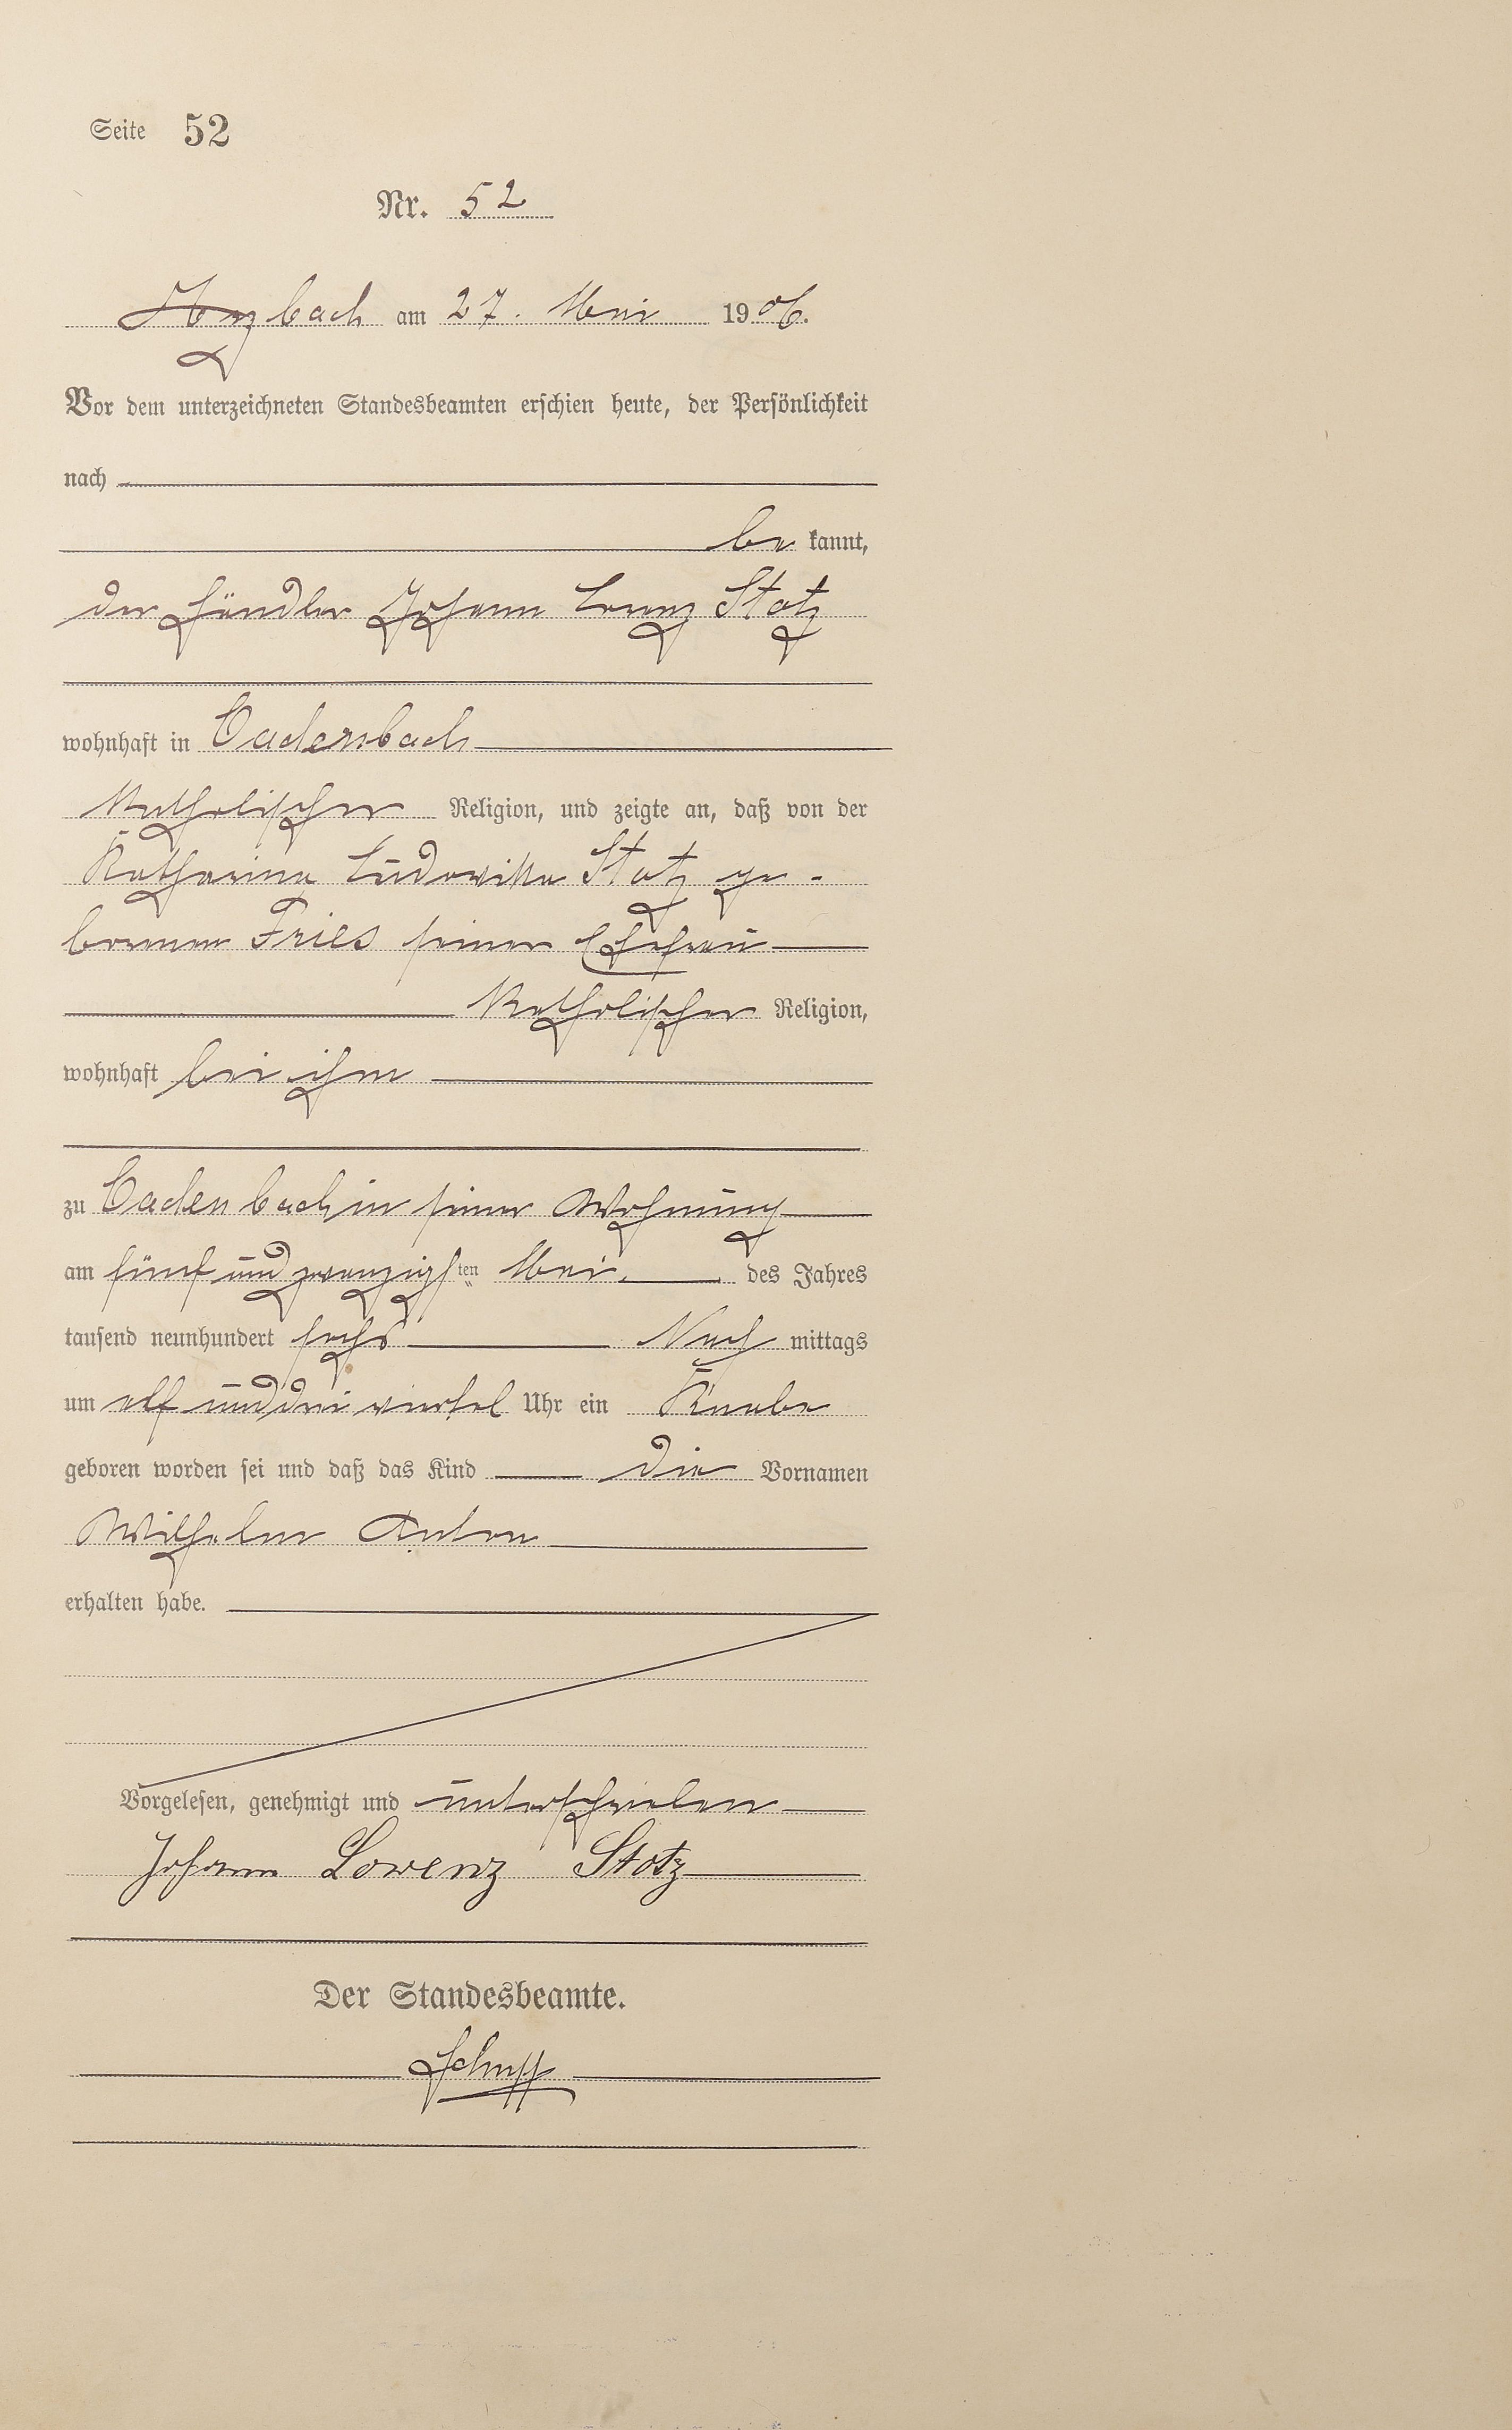 Seite 52
Nr. 52
Arzbach am 27. Mai 1906.
Vor dem unterzeichneten Standesbeamten erschien heute, der Persönlichkeit
nach
be kannt,
der Händler Johann Lorenz Stotz
wohnhaft in Cadenbach
katholischer Religion, und zeigte an, daß von der
Katharina Ludovika Stotz ge-
borenen Fries seiner Ehefrau
katholischer Religion,
wohnhaft bei ihm
zu Cadenbach in seiner Wohnung
am fünf und zwanzigsten Mai des Jahres
tausend neunhundert sechs Nach mittags
um elf und drei viertel Uhr ein Knabe
geboren worden sei und daß das Kind die Vornamen
Wilhelm Anton
erhalten habe.
Vorgelesen, genehmigt und unterschrieben
Johann Lorenz Stotz
Der Standesbeamte.